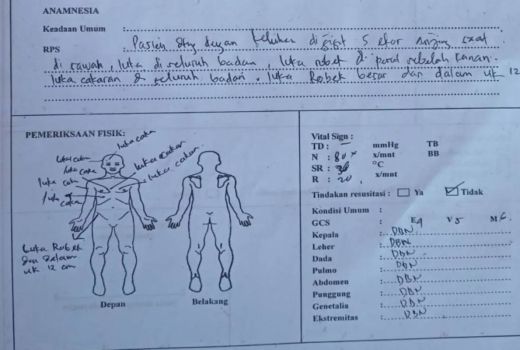 ANAMNESIA
Keadaan Umum :
RPS : Pasien dtg dengan keluhan di gigit 5 ekor anjing saat
di sawah, luka di seluruh badan, luka robek di sebelah kanan.
luka cakaran di seluruh badan. luka Robek besar dan dalam uk 12
PEMERIKSAAN FISIK:
luka cakar
luka cakar
luka cakar
luka cakaran
luka cakar
luka cakaran
luka cakar
Luka Robek
dan dalam
uk 12 cm
Depan
Belakang
Vital Sign :
TD : – mmHg TB
N : 80 x x/mnt BB
SR : °C
R : 20 x/mnt
Tindakan resusitasi : Ya Tidak
Kondisi Umum :
GCS : E4 V5 M6
Kepala : DBN
Leher : DBN
Dada : DBN
Pulmo : DBN
Abdomen : DBN
Punggung : DBN
Genetalia : DBN
Ekstremitas : DBN